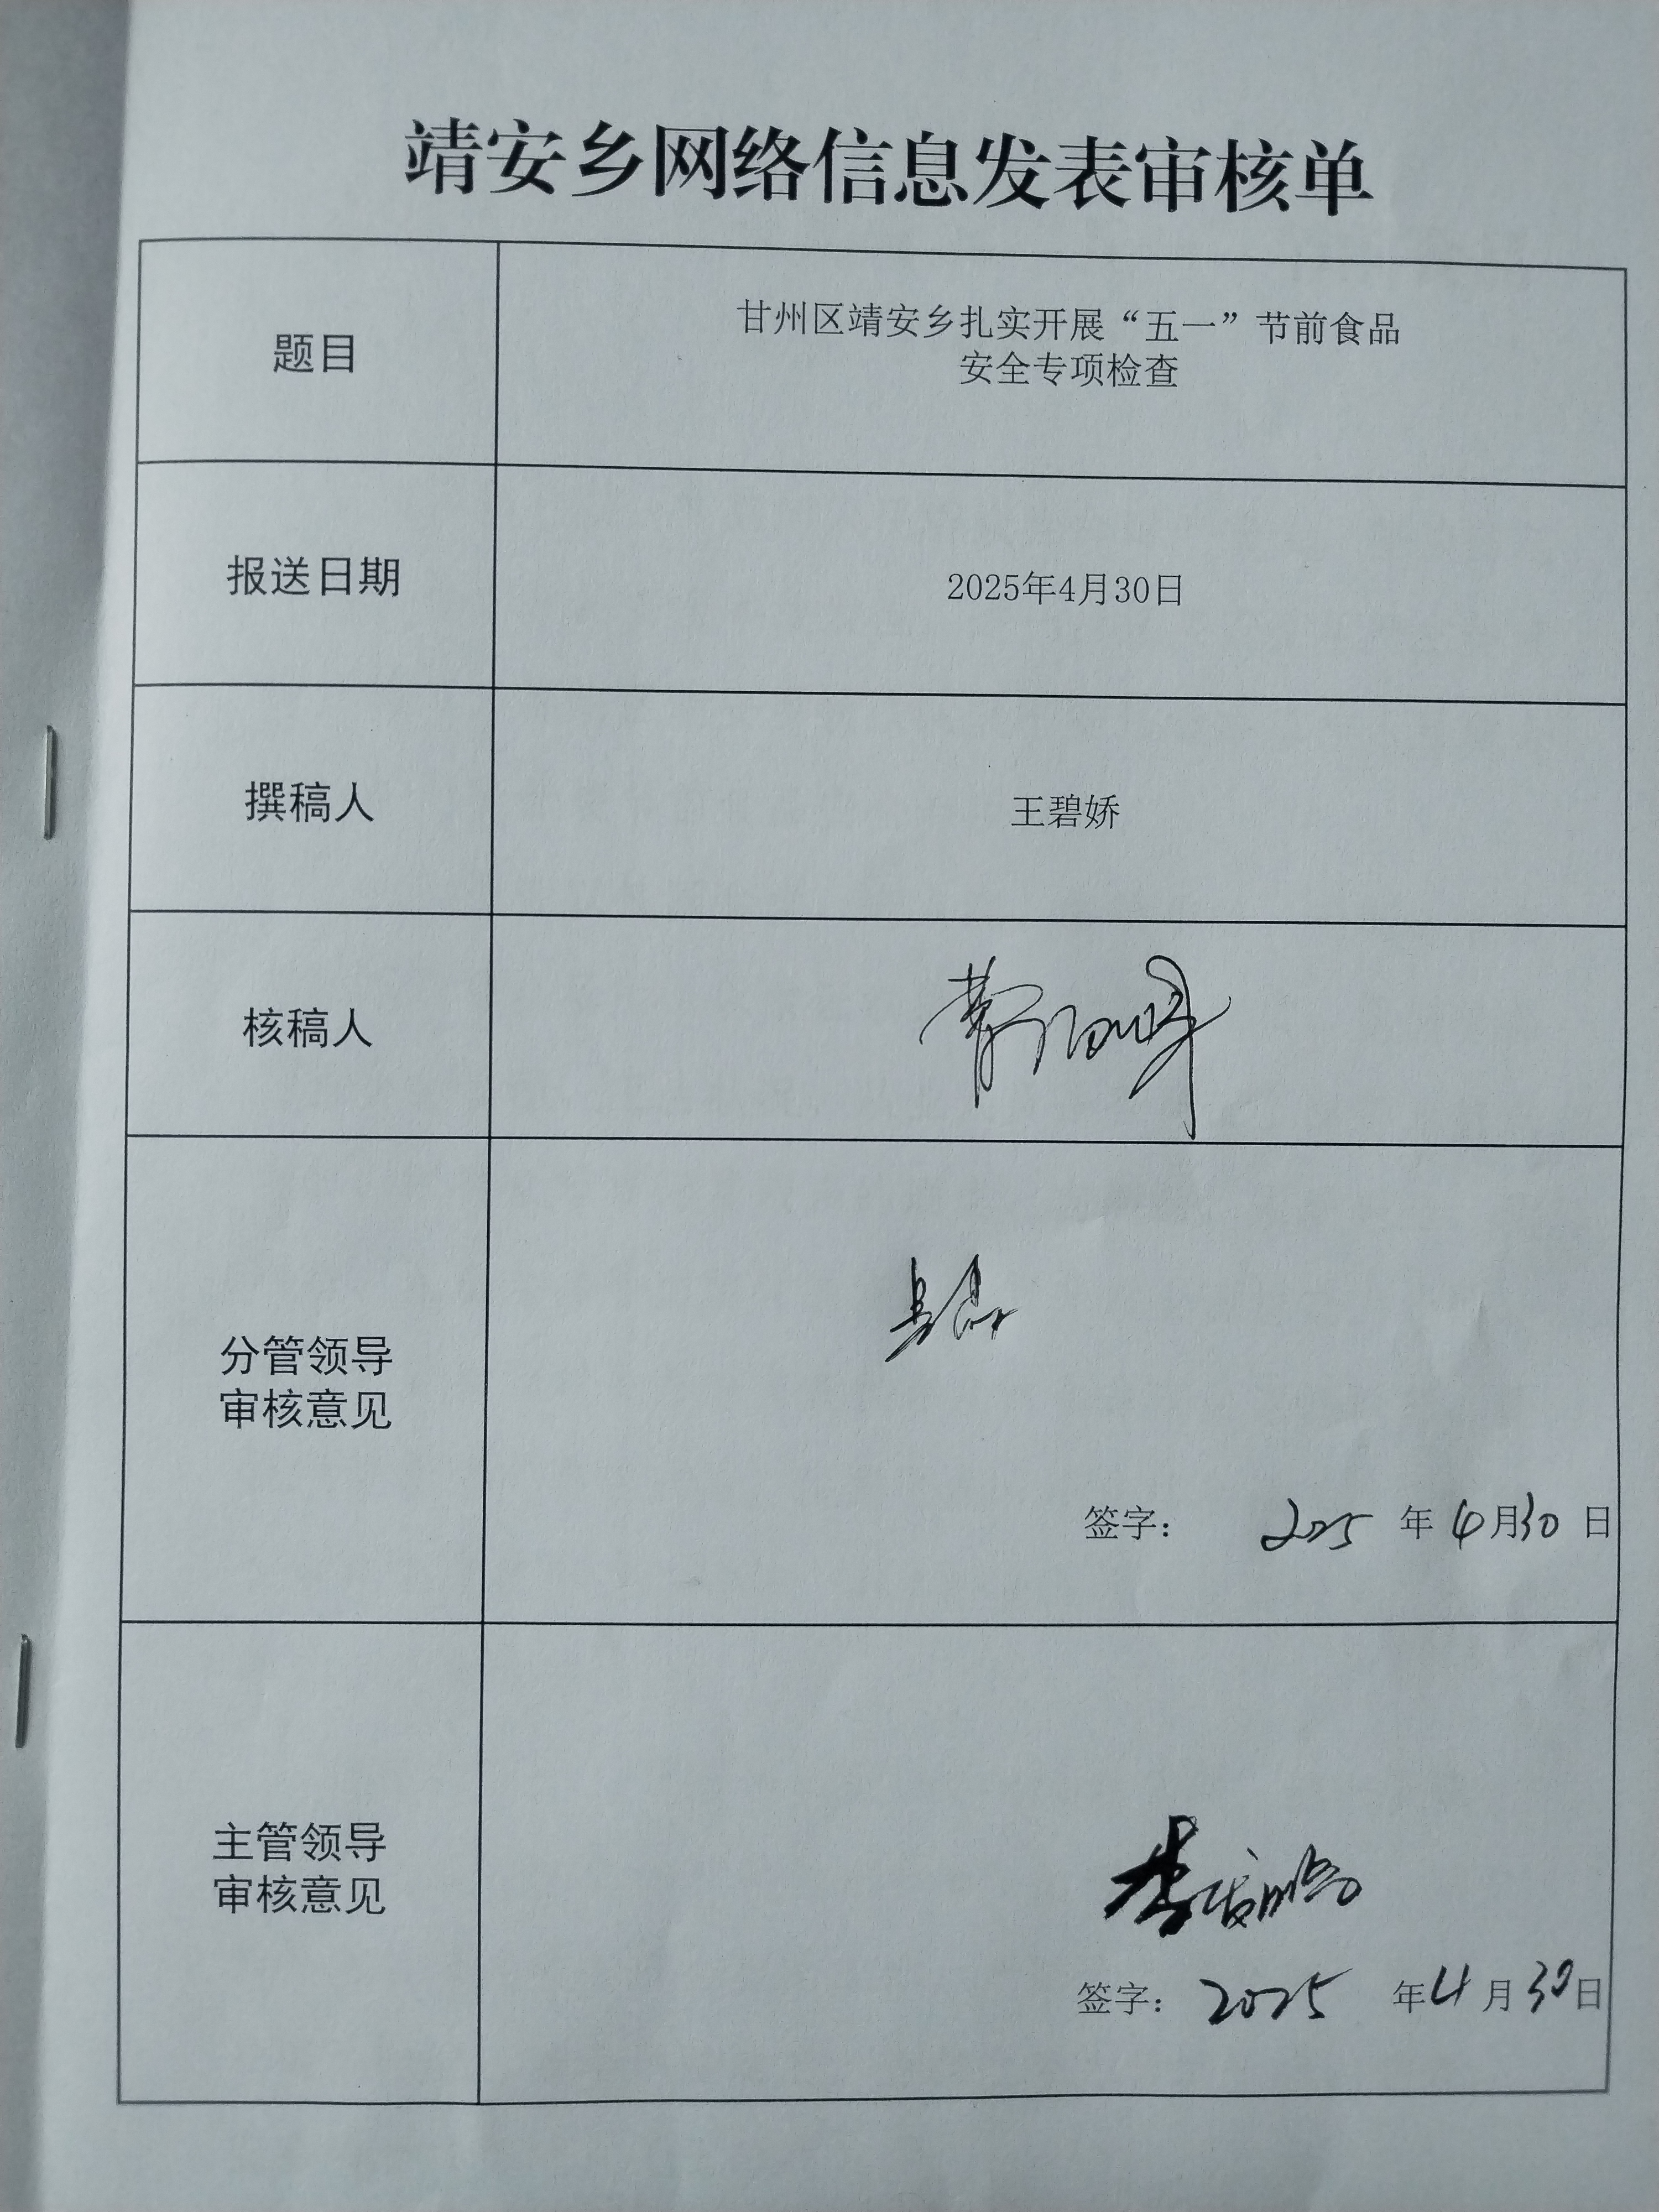 靖安乡网络信息发表审核单
题目
甘州区靖安乡扎实开展“五一”节前食品
安全专项检查
报送日期
2025年4月30日
撰稿人
王碧娇
核稿人
分管领导
审核意见
签字： 2025 年 4 月 30 日
主管领导
审核意见
签字： 2025 年 4 月 30 日